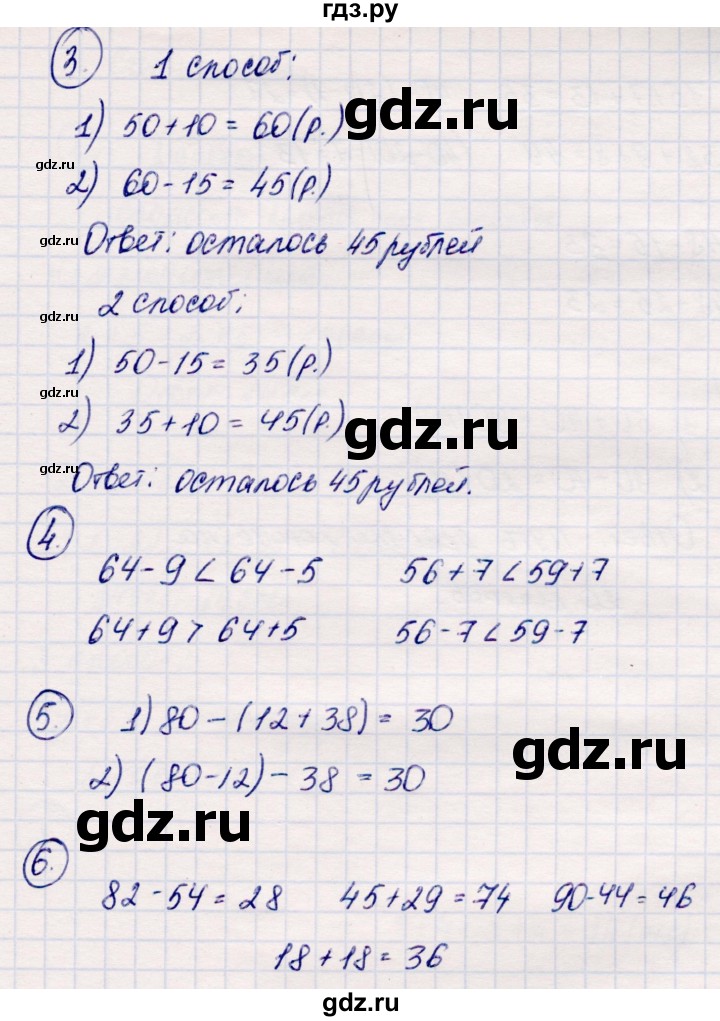 гдз.ру
3. 1 способ:
1) 50+10 = 60(р.)
2) 60-15 = 45(р.)
Ответ: осталось 45 рублей
2 способ:
1) 50-15 = 35(р.)
2) 35+10 = 45(р.)
Ответ: осталось 45 рублей.
4.
64-9 < 64-5 56+7 < 59+7
64+9 > 64+5 56-7 < 59-7
5. 1) 80-(12+38) = 30
2) (80-12)-38 = 30
6.
82-54 = 28 45+29 = 74 90-44 = 46
18+18 = 36
gdz.ru
gdz.ru
gdz.ru
gdz.ru
gdz.ru
gdz.ru
gdz.ru
gdz.ru
gdz.ru
gdz.ru